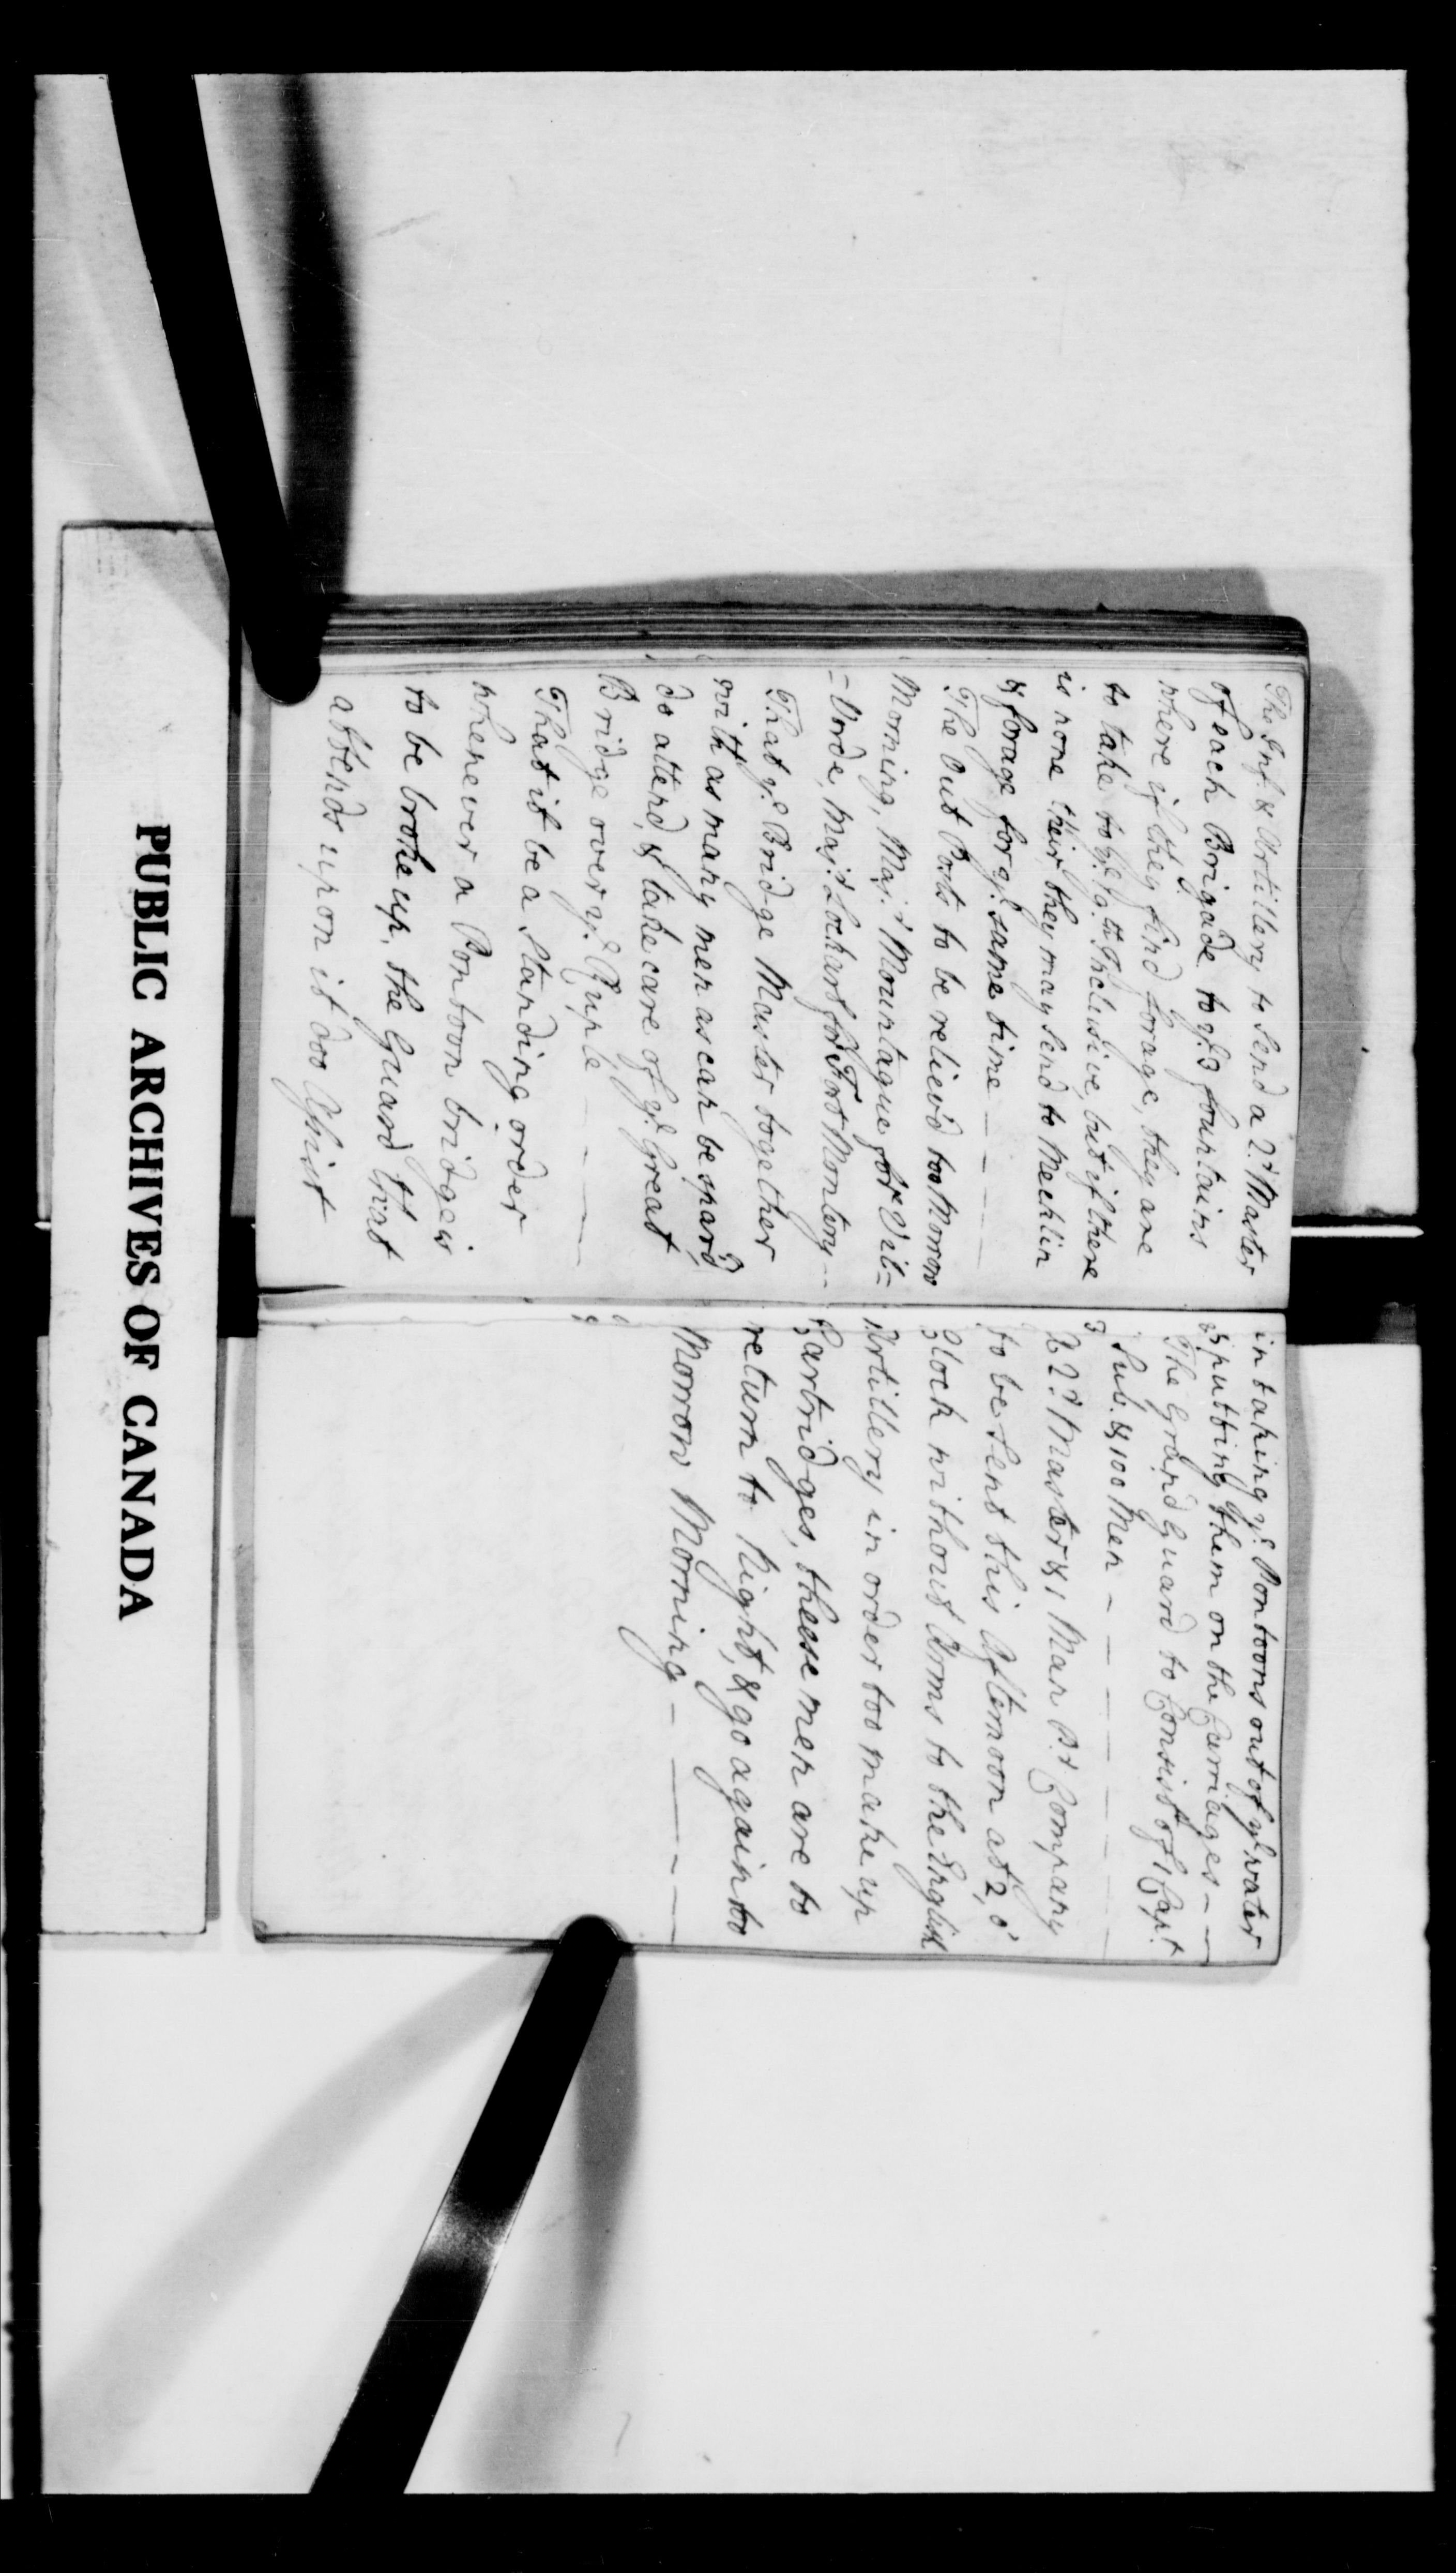 The Inf. & Artillery to Send a 2.r Master
of each Brigade to y.e 3 fountains
where if they find forage, they are
to take to y.e 19.th Inclusive, but if there
is none their they may send to Mechlin
& forage for y.e same time
The Out Posts to be reliev'd too Morrow
Morning, Maj.r Mountague for Vil=
=Vorde, Maj.r Lockart for Fort Montery
That y.e Bridge Master together
with as many men as can be spar'd,
do attend, & take care of y.e Great
Bridge over y.e Ruple
That it be a Standing order
whenever a Pontoon bridge is
to be broke up, the Guard that
attends upon it doo Assist
in taking y.e Pontoons out of y.e water
& putting them on the Carriages
The Grand Guard to Consist of 1 Cap.t
3 Sub. & 100 Men
2 2.r Master & 1 Man P.r Company
to be Sent this Afternoon at 2, o'
Clock without Arms to the English
Artillery in order too make up
Cartridges, theese men are to
return to Night, & go again too
Morrow Morning
PUBLIC ARCHIVES OF CANADA